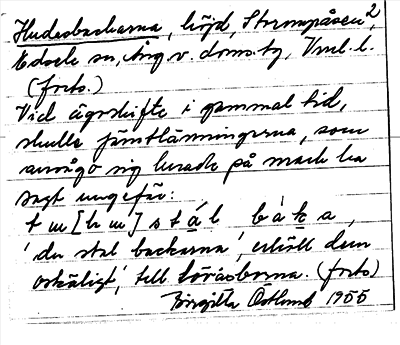 Hudesbackarna, höjd, Strompåsen 2,
Edsele sn, Ång v. doms. tg, Vnrl. l.
(forts.)
Vid ägoskifte i gammal tid,
skulle jämtlänningerna, som
ansågo sig lurade på mark ha
sagt ungefär:
s t á l b á k a ,
'du stal backarna', erhöll den
oskäligt', till (forts)
Birgitta Östlund 1955